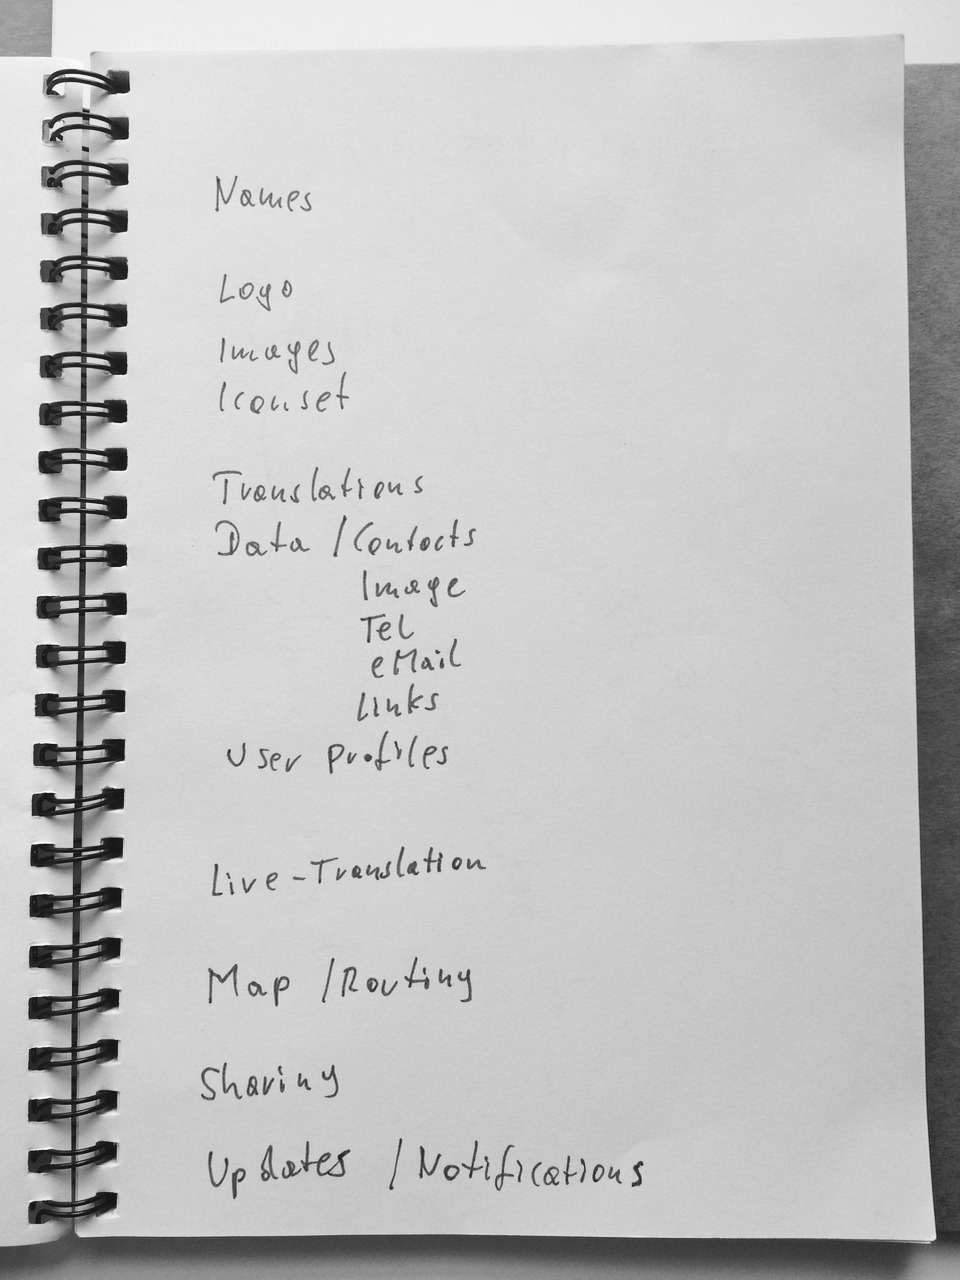 Names
Logo
Images
Iconset
Translations
Data / Contacts
Image
Tel
eMail
Links
User profiles
Live-Translation
Map / Routing
Sharing
Updates / Notifications